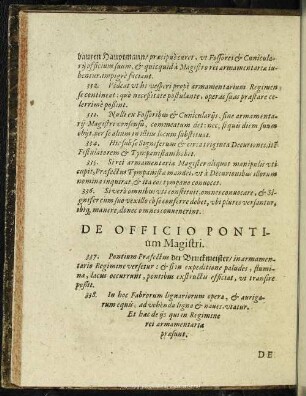 bawren Hauptmann/ præcipuè curet, vt Fossores & Cunicula-
rij officium suum, & quicquid à Magistro rei armamentaria in-
beatur, impigrè faciant.
332. Videat vt hi vesperi propè armamentarium Regimen
se contineat: quò necessitate postulante, operas suas præstare ce-
lerrimè possint.
333. Nulli ex Fossoribus & Cunicularijs, sine armamenta-
rij Magistri consensu, commeatum det: nec, si quis diem suum
obijt, per se alium in istius locum substituat.
334. Hic sub se Signiferum & circa triginta Decuriones, ité
Fistulatorem & Tympanistam habet.
335. Si rei armamentaria Magister aliquot manipulis vti
cupit, Præfectus Tympanistæ mandet, vt à Decurionibus illorum
nomina inquirat, & ita eos tympano convocet.
336. Si verò omnibus vti constituit, omnes convocare, & Si-
gnifer cum suo vexillo eò se conferre debet, vbi plures versantur,
ibiq; manere, donec omnes convenerint.
DE OFFICIO PONTI-
um Magistri.
337. Pontium Præfectus der Bruckmeister/ in armamen-
tario Regimine versetur: & si in expeditione paludes, flumi-
na, lacus occurrunt, pontibus exstructis efficiat, vt transire
possit.
338. In hoc Fabrorum lignariorum opera, & auriga-
rum equis, ad vehenda ligna & naues, vtatur.
Et hæc de ijs qui in Regimine
rei armamentaria
præsunt.
DE